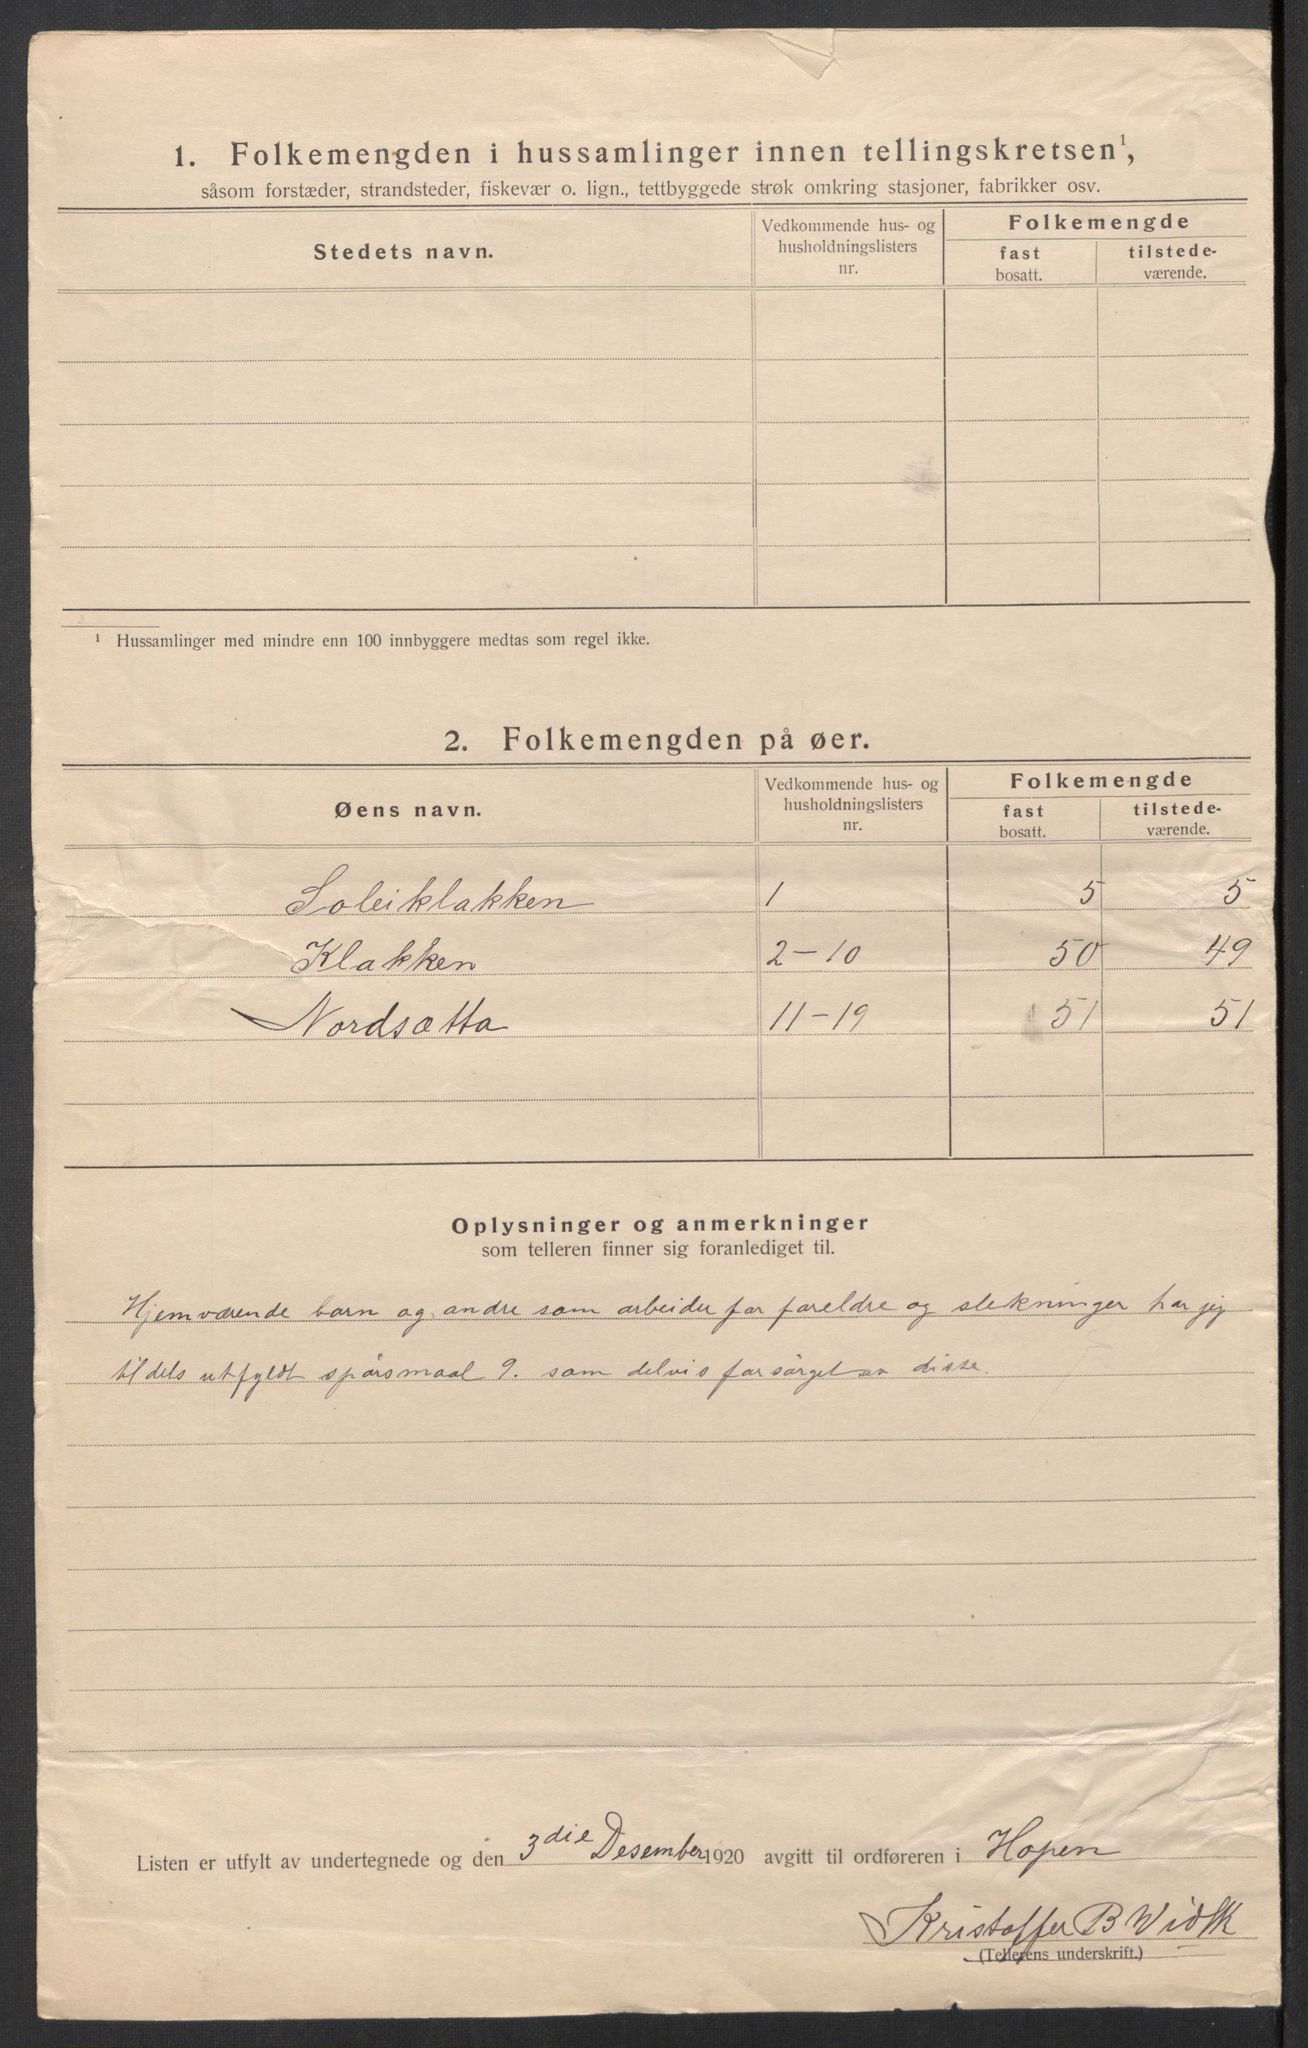 1. Folkemengden i hussamlinger innen tellingskretsen¹,
såsom forstæder, strandsteder, fiskevær o. lign., tettbyggede strøk omkring stasjoner, fabrikker osv.
Stedets navn.
Vedkommende hus- og husholdningslisters nr.
Folkemengde
fast bosatt.
tilstede-værende.
¹ Hussamlinger med mindre enn 100 innbyggere medtas som regel ikke.
2. Folkemengden på øer.
Øens navn.
Vedkommende hus- og husholdningslisters nr.
Folkemengde
fast bosatt.
tilstede-værende.
Soleiklakken 1 5 5
Klakken 2-10 50 49
Nordsætta 11-19 51 51
Oplysninger og anmerkninger
som telleren finner sig foranlediget til.
Hjemværende barn og andre som arbeider for foreldre og slektninger har jeg
til dels utfyldt spørsmaal 9. som delvis forsørget av disse.
Listen er utfylt av undertegnede og den 3die Desember 1920 avgitt til ordføreren i Hopen
Kristoffer B
(Tellerens underskrift.)